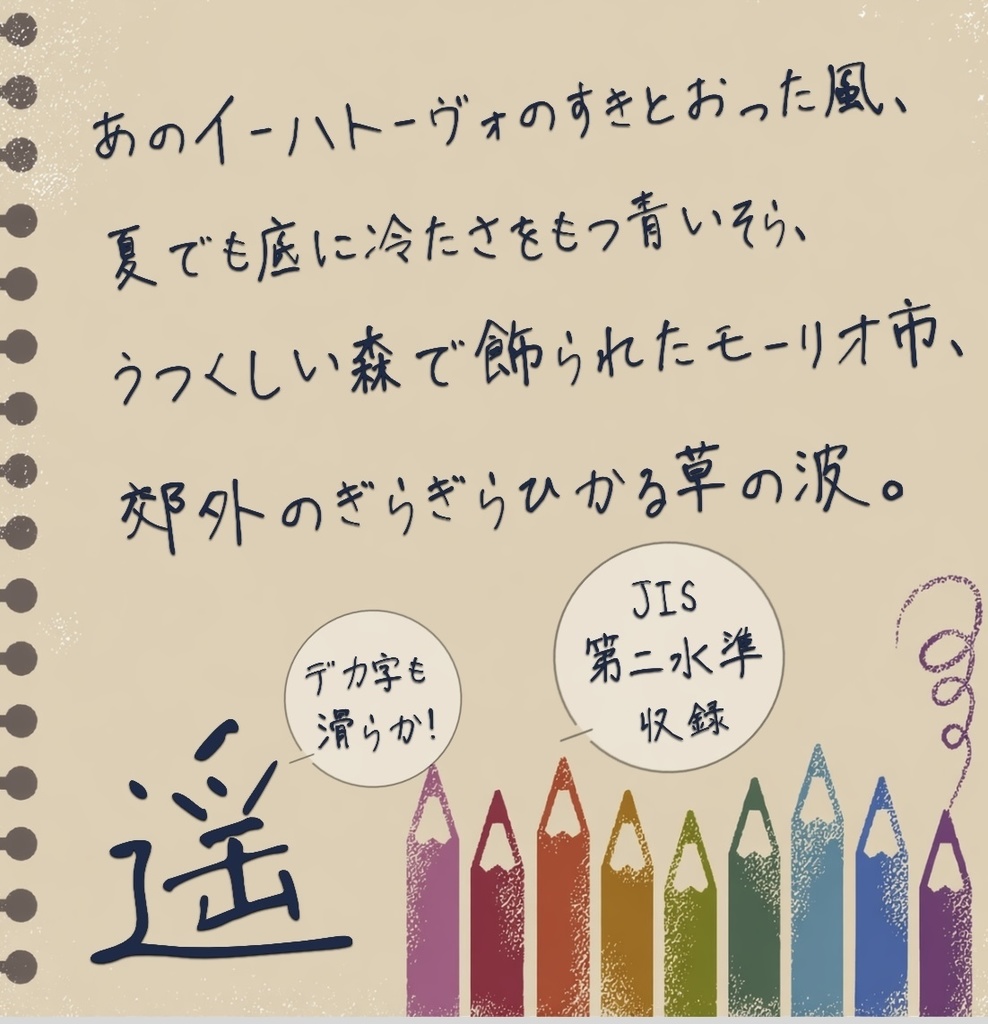 あのイーハトーヴォのすきとおった風、
夏でも底に冷たさをもつ青いそら、
うつくしい森で飾られたモーリオ市、
郊外のぎらぎらひかる草の波。
デカ字も
滑らか!
JIS
第二水準
収録
遥